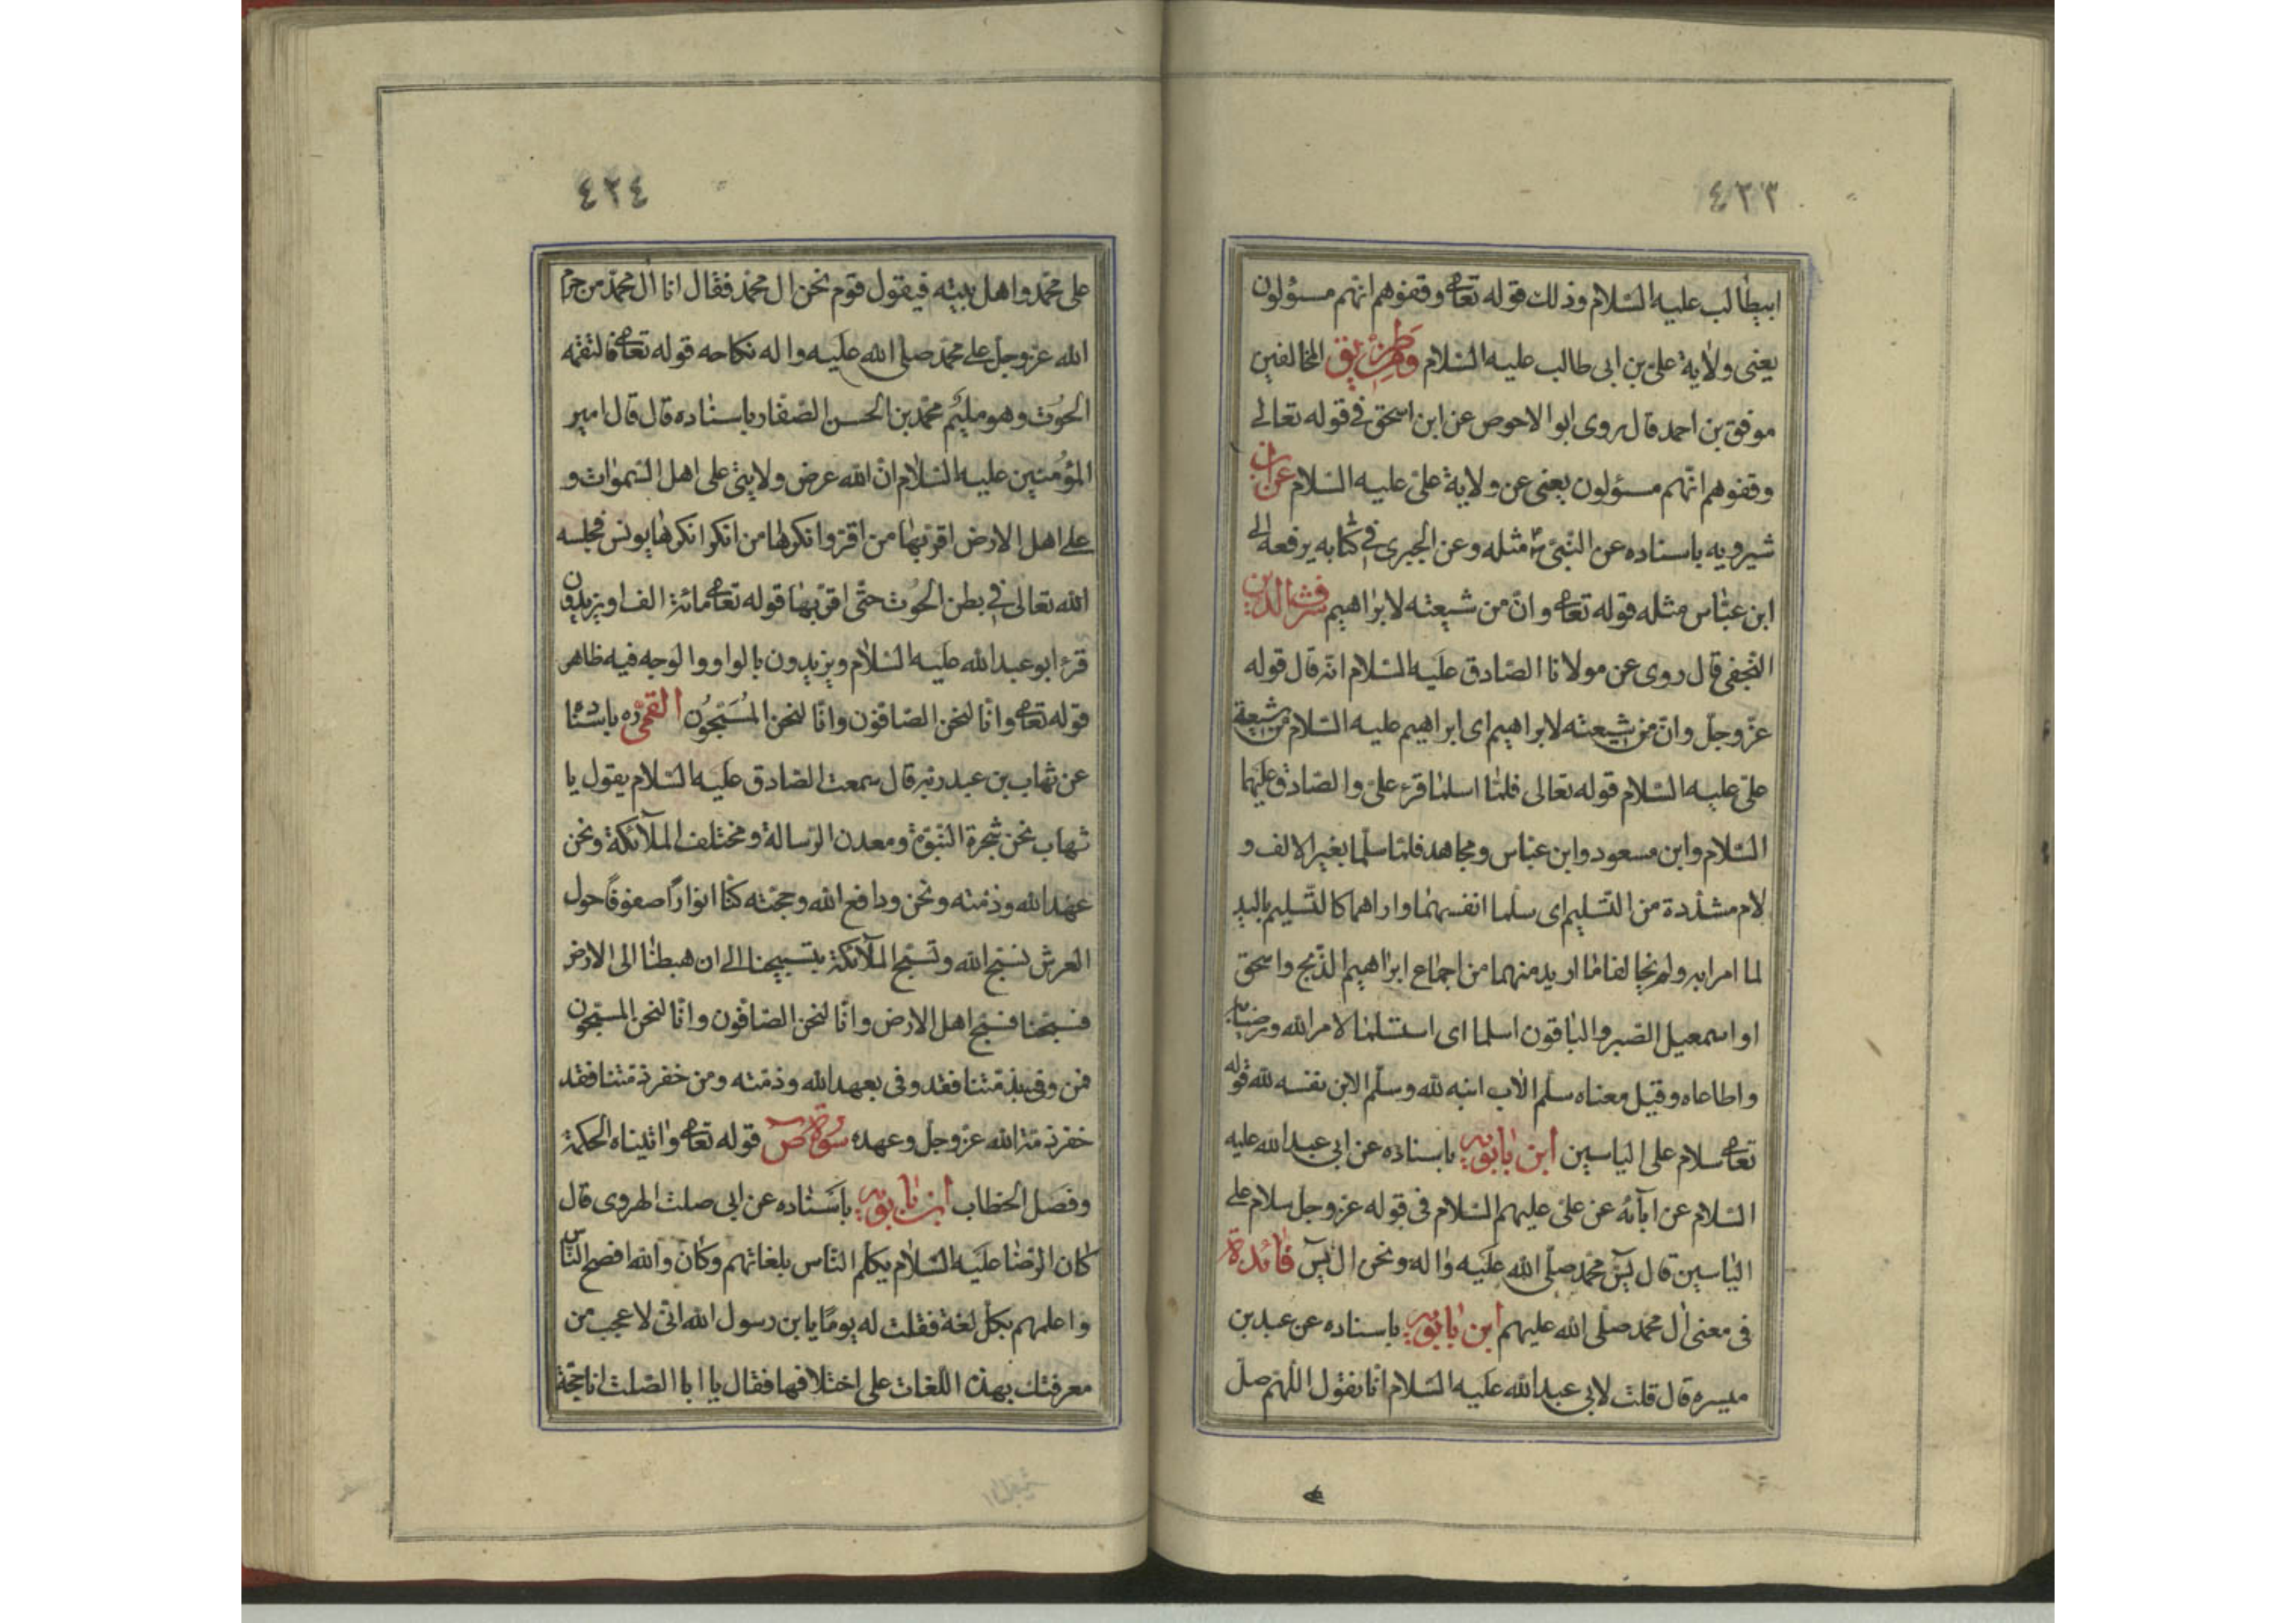 ٤٢٣
ابيطالب عليه السّلام وذلك قوله تعالى وقفوهم انّهم مسؤلون
يعنى ولاية علىّ بن ابى طالب عليه السّلام ومن طريق المخالفين
موفق بن احمد قال روى ابو الاحوص عن ابن اسحق فى قوله تعالى
وقفوهم انّهم مسؤلون يعنى عن ولاية علىّ عليه السّلام عن ابن
شيرويه باسناده عن النّبىّ ص مثله وعن الحبرى فى كتابه يرفعه الى
ابن عبّاس مثله قوله تعالى وانّ من شيعته لابراهيم شرف الدين
النّجفى قال روى عن مولانا الصّادق عليه السّلام انّه قال قوله
عزّ وجلّ وانّ من شيعته لابراهيم اى ابراهيم عليه السّلام من شيعة
علىّ عليه السّلام قوله تعالى فلمّا اسلما قرء علىّ والصّادق عليهما
السّلام وابن مسعود وابن عبّاس ومجاهد فلمّا سلّما بغير الالف و
لام مشدّدة من التّسليم اى سلّما انفسهما وارادهما كالتّسليم باليد
لما امرا به ولم يخالفا ما اريد منهما من اجماع ابراهيم الذّبح واسحق
او اسمعيل الصّبر والباقون اسلما اى استسلما لامر الله ورضيا به
واطاعاه وقيل معناه سلّم الاب ابنه لله وسلّم الابن نفسه لله قوله
تعالى سلام على الياسين ابن بابويه باسناده عن ابى عبد الله عليه
السّلام عن ابآئه عن علىّ عليهم السّلام فى قوله عزّ وجلّ سلام على
الياسين قال يسٓ محمّد صلّى الله عليه واله ونحن ال يسٓ فائدة
فى معنى ال محمّد صلّى الله عليهم ابن بابويه باسناده عن عبد بن
ميسره قال قلت لابى عبد الله عليه السّلام انّا نقول اللّهمّ صلّ
٤٢٤
على محمّد واهل بيته فيقول قوم نحن ال محمّد فقال انّما ال محمّد من حرّم
الله عزّ وجلّ على محمّد صلّى الله عليه واله نكاحه قوله تعالى فالتقمه
الحوت وهو مليم محمّد بن الحسن الصّفّار باسناده قال قال امير
المؤمنين عليه السّلام انّ الله عرض ولايتى على اهل السّموات و
على اهل الارض اقرّ بها من اقرّ وانكرها من انكر انكرها يونس فحبسه
الله تعالى فى بطن الحوت حتّى اقرّ بها قوله تعالى مائة الف او يزيدون
قرء ابو عبد الله عليه السّلام ويزيدون بالواو والوجه فيه ظاهر
قوله تعالى وانّا لنحن الصّافّون وانّا لنحن المسبّحون القمّى ره باسناده
عن شهاب بن عبد ربّه قال سمعت الصّادق عليه السّلام يقول يا
شهاب نحن شجرة النّبوّة ومعدن الرّسالة ومختلف الملآئكة ونحن
عهد الله وذمّته ونحن ودافع الله وحجّته كنّا انوارًا صفوفًا حول
العرش نسبّح الله وتسبّح الملآئكة بتسبيحنا الى ان هبطنا الى الارض
فسبّحنا فسبّح اهل الارض وانّا لنحن الصّافّون وانّا لنحن المسبّحون
فمن وفى بذمّتنا فقد وفى بعهد الله وذمّته ومن خفر ذمّتنا فقد
خفر ذمّة الله عزّ وجلّ وعهده سورة ص قوله تعالى واتيناه الحكمة
وفصل الخطاب ابن بابويه باسناده عن ابى صلت الهروى قال
كان الرّضا عليه السّلام يكلّم النّاس بلغاتهم وكان والله افصح النّاس
واعلمهم بكلّ لغة فقلت له يومًا يا بن رسول الله انّى لاعجب من
معرفتك بهذه اللّغات على اختلافها فقال يا ابا الصّلت انا حجّة